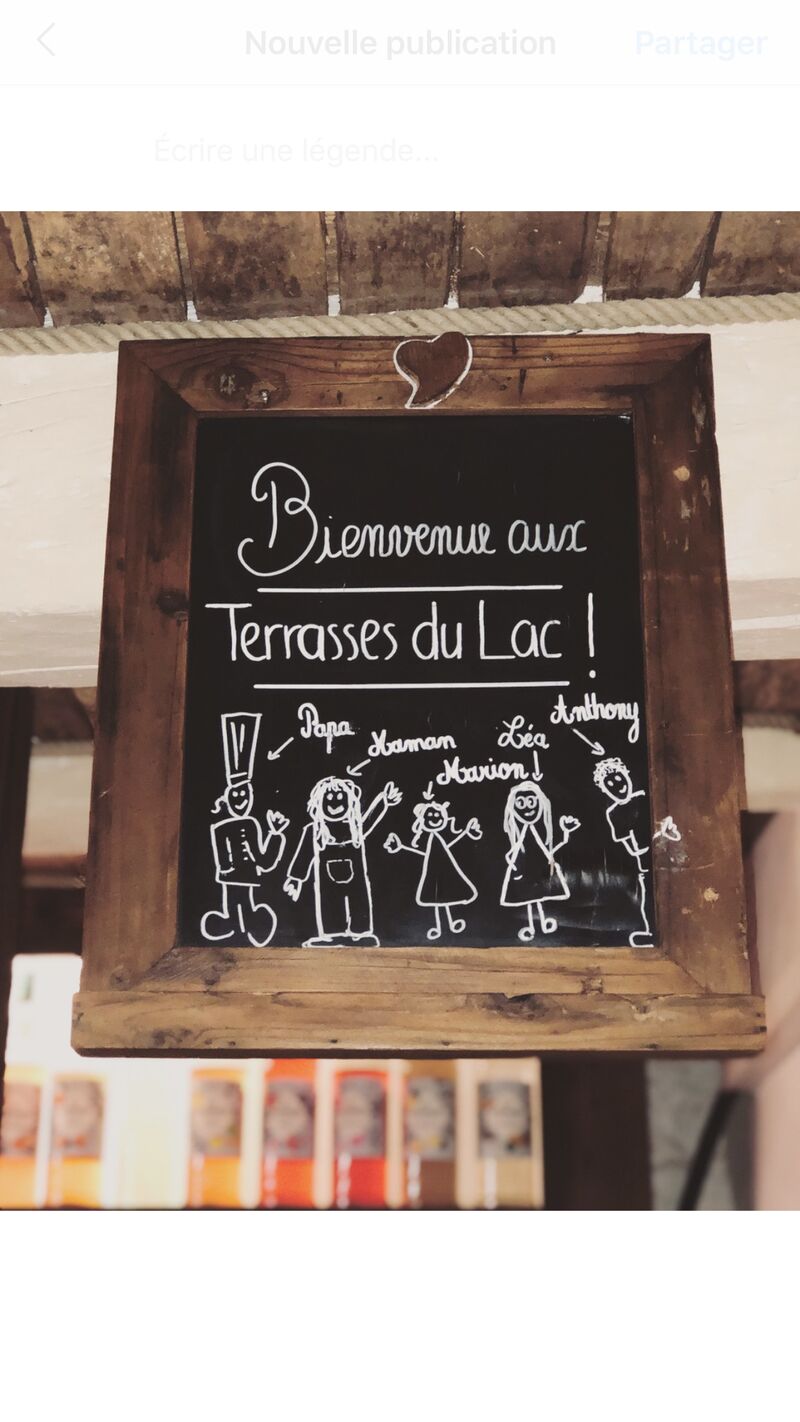 Nouvelle publication
Partager
Écrire une légende...
Bienvenue aux
Terrasses du Lac !
Papa
Maman
Marion
Léa
Anthony